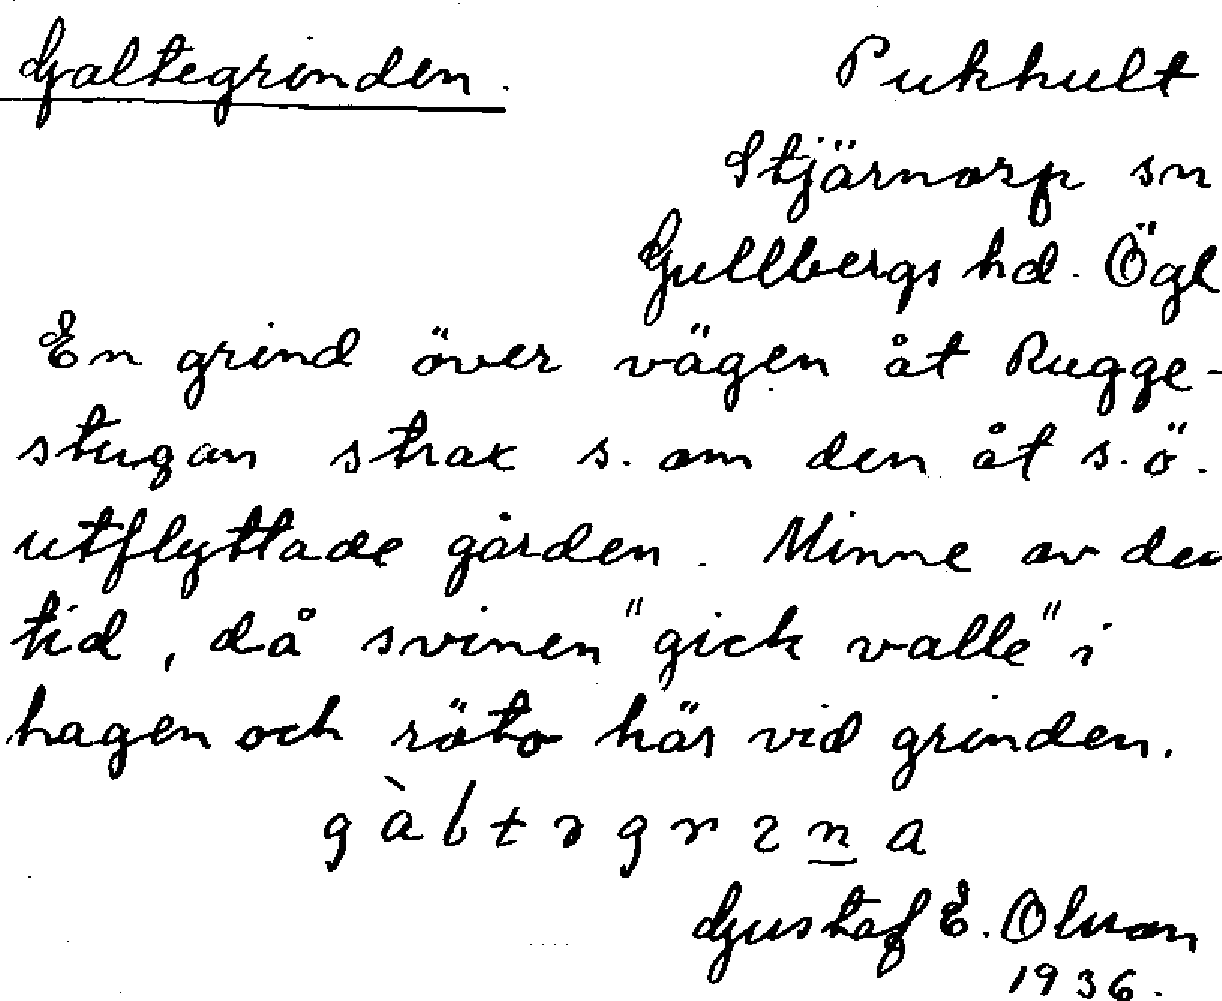 Galtegrinden.
Pukhult
Stjärnorp sn
Gullbergs hd. Ögl
En grind över vägen åt Rugge-
stugan strax s. om den åt s.ö.
utflyttade gården. Minne av den
tid, då svinen "gick valle" i
hagen och röto här vid grinden.
Gustaf E. Olsson
1936.